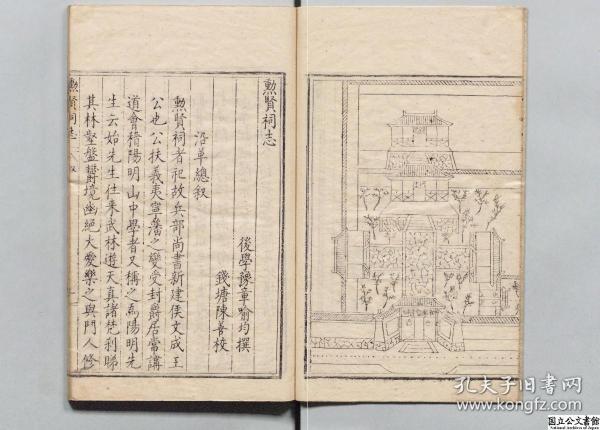 勲賢祠志
後學豫章喻均撰
錢塘陳善校
沿革總叙
勲賢祠者祀故兵部尚書新建侯文成王
公也公扶義夷寧藩之變受封爵居嘗講
道會稽陽明山中學者又稱之為陽明先
生云始先生仕來武林遊天真諸梵刹睇
其林壑盤欝境幽絕大愛樂之與門人修
勲賢祠志
孔夫子旧书网
www.kongfz.com
国立公文書館
National Archives of Japan